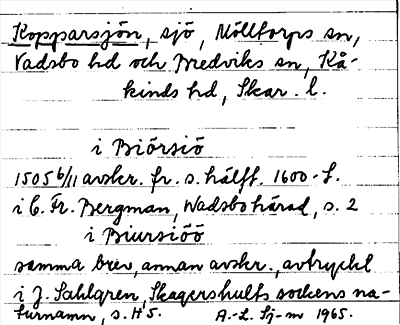 Kopparsjön, sjö, Mölltorps sn,
Vadsbo hd och Bredviks sn, Kå-
kinds hd, Skar. l.
i Biörsiö
1505 6/11 avskr. fr. s. hälft. 1600-t.
i C. Fr. Bergman, Wadsbo härad, s. 2
i Biursiöö
samma brev, annan avskr., avtryckt
i J. Sahlgren, Skagershults sockens na-
turnamn, s. 45.
A.-L. Sj-m 1965.